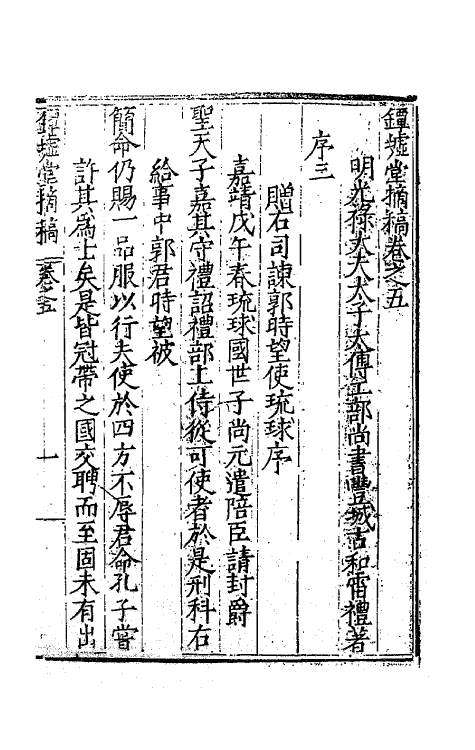 鐔墟堂摘稿卷之五
明光祿大夫太子太傅工部尚書豐城古和雷禮著
序三
贈右司諫郭時望使琉球序
嘉靖戊午春琉球國世子尚元遣陪臣請封爵
聖天子嘉其守禮詔禮部上侍從可使者於是刑科右
給事中郭君時望被
簡命仍賜一品服以行夫使於四方不辱君命孔子嘗
許其為士矣是皆冠帶之國交聘而至固未有出
鐔墟堂摘稿 卷之五 一